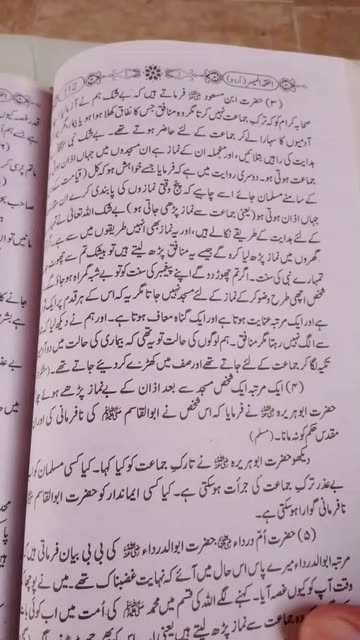 الفقہ المیسر (اردو) 112
(۳) حضرت ابن مسعود ﷺ فرماتے ہیں کہ بے شک ہم نے
صحابہ کرام کو کہ ترک جماعت نہیں کرتا مگر وہ منافق جس کا نفاق کھلا ہوا ہو یا
آدمیوں کا سہارا لے کر جماعت کے لئے حاضر ہوتے تھے۔ بے شک نبی
ہدایت کی راہیں بتلائیں، اور منجملہ ان کے نماز ہے ان مسجدوں میں جہاں اذان
جماعت ہوتی ہو۔ دوسری روایت میں ہے کہ فرمایا جسے خواہش ہو کل (قیامت
کے سامنے مسلمان جائے اسے چاہیے کہ پنج وقتی نمازوں کی پابندی کرے
جہاں اذان ہوتی ہو (یعنی جماعت سے نماز پڑھی جاتی ہو) بے شک اللہ تعالیٰ نے
کے لئے ہدایت کے طریقے نکالے ہیں، اور یہ نماز بھی انہیں طریقوں میں سے ہے۔
گھروں میں نماز پڑھ لیا کرو گے جیسے یہ منافق پڑھ لیتے ہیں تو بیشک تم سے چھوٹ
تمہارے نبی کی سنت۔ اگر تم چھوڑ دو گے اپنے پیغمبر کی سنت کو تو بے شبہ گمراہ ہو جاؤ گے
شخص اچھی طرح وضو کر کے نماز کے لئے مسجد نہیں جاتا مگر یہ کہ اس کے ہر قدم پر ایک
ہے اور ایک مرتبہ عنایت ہوتا ہے اور ایک گناہ معاف ہوتا ہے۔ اور ہم نے دیکھ لیا
سے الگ نہیں رہتا مگر منافق۔ ہم لوگوں کی حالت تو یہ تھی کہ بیماری کی حالت میں دو
تکیہ لگا کر جماعت کے لئے جاتے تھے اور صف میں کھڑے کر دیئے جاتے تھے۔
(۴) ایک مرتبہ ایک شخص مسجد سے بعد اذان کے بے نماز پڑھے ہوئے
حضرت ابو ہریرہ ﷺ نے فرمایا کہ اس شخص نے ابوالقاسم ﷺ کی نافرمانی کی اور
مقدس حکم کو نہ مانا۔ (مسلم)
دیکھو حضرت ابو ہریرہ ﷺ نے تارک جماعت کو کیا کہا۔ کیا کسی مسلمان کو
بے عذر ترک جماعت کی جرأت ہو سکتی ہے۔ کیا کسی ایماندار کو حضرت ابوالقاسم ﷺ
نافرمانی گوارا ہو سکتی ہے۔
(۵) حضرت ام درداء ﷺ حضرت ابوالدرداء ﷺ کی بی بی بیان فرماتی ہیں
مرتبہ ابوالدرداء میرے پاس اس حال میں آئے کہ نہایت غضبناک تھے۔ میں نے پوچھا
وقت آپ کو کیوں غصہ آیا۔ کہنے لگے اللہ کی قسم میں محمد ﷺ کی اُمت میں اب کوئی
جماعت سے نماز پڑھ لیتے ہیں یعنی